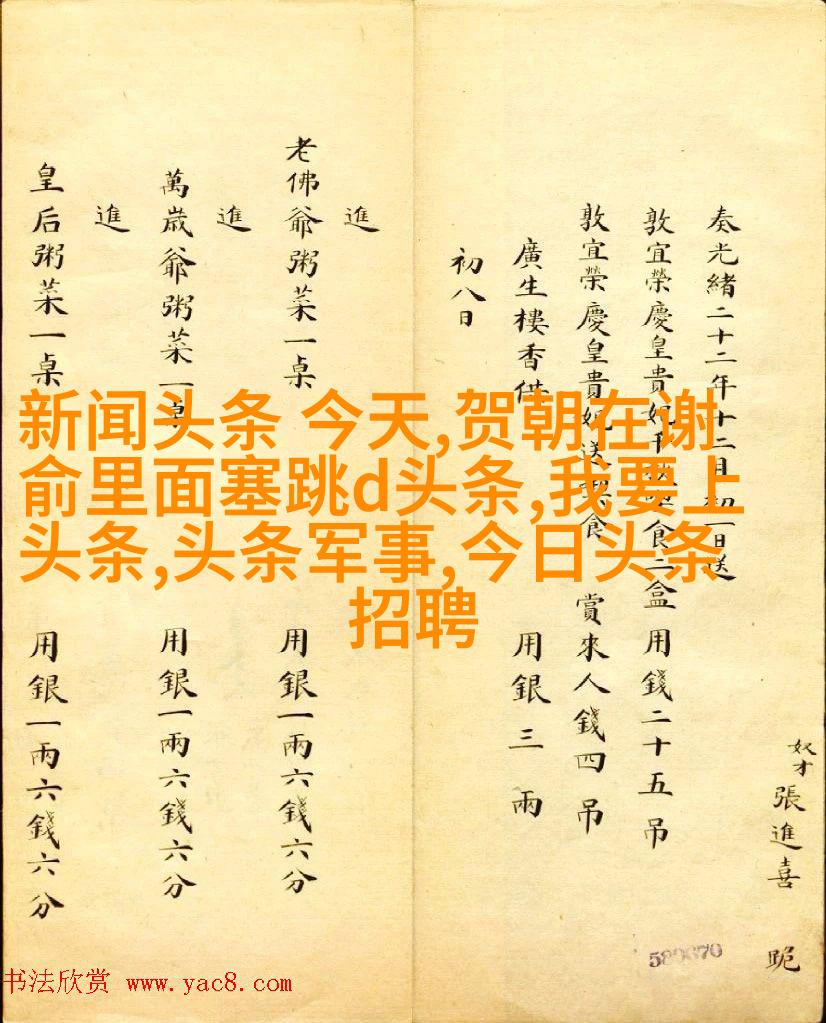 奴才張進喜 跪
奏光緒二十二年十二月初一日送
敦宜榮慶皇貴妃千秋 食二盒 用錢二十五吊
敦宜榮慶皇貴妃送 食 賞來人錢四吊
廣生樓香供 用銀三兩
初八日
進
老佛爺粥菜一桌 用銀一兩六錢六分
進
萬歲爺粥菜一桌 用銀一兩六錢六分
進
皇后粥菜一桌 用銀一兩六錢六分
新闻头条 今天,贺朝在谢
俞里面塞跳d头条,我要上
头条,头条军事,今日头条
招聘
书法欣赏 www.yac8.com